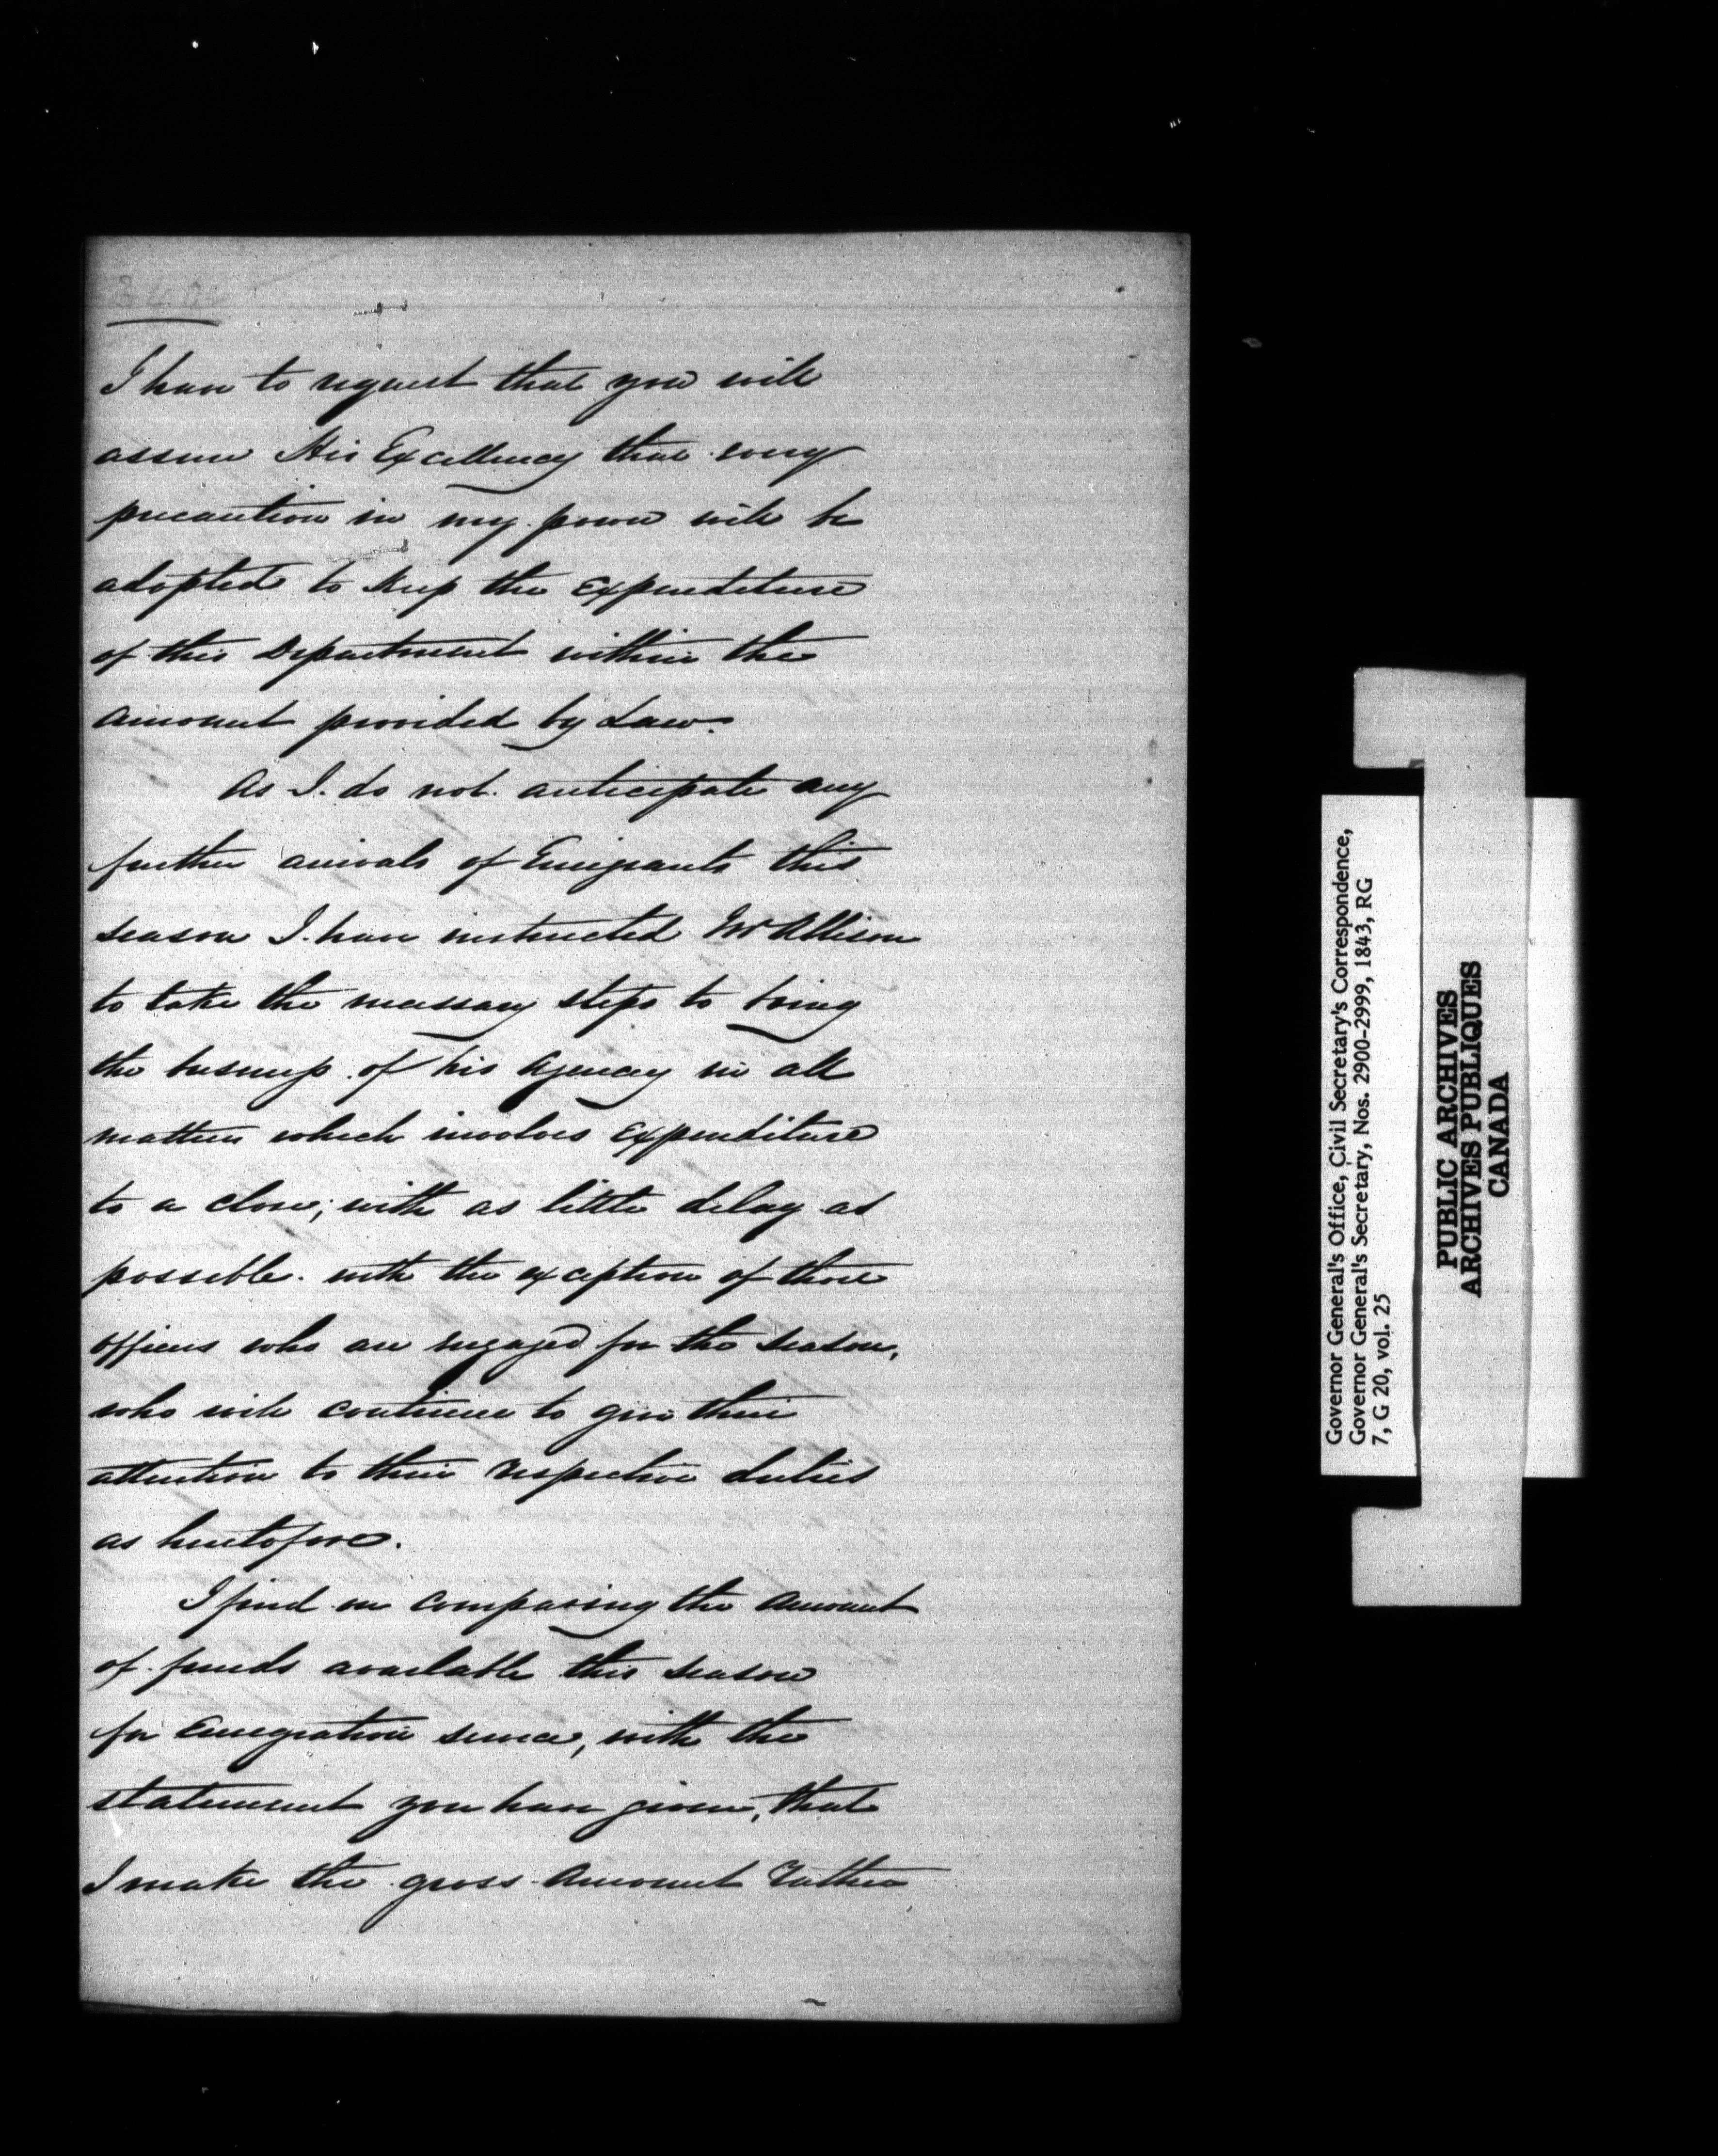 340
I have to request that you will
assure His Excellency that every
precaution in my power will be
adopted to keep the Expenditure
of this Department within the
amount provided by Law.
As I do not anticipate any
further arrivals of Emigrants this
season I have instructed Mr Allison
to take the necessary steps to bring
the business of his Agency in all
matters which involves Expenditure
to a close; with as little delay as
possible. with the exception of those
officers who are engaged for the season,
who will continue to give their
attention to their respective duties
as heretofore.
I find on comparing the amount
of funds available this season
for Emigration service, with the
statement you have given, that
I make the gross amount rather
Governor General's Office, Civil Secretary's Correspondence,
Governor General's Secretary, Nos. 2900-2999, 1843, RG
7, G 20, vol. 25
PUBLIC ARCHIVES
ARCHIVES PUBLIQUES
CANADA